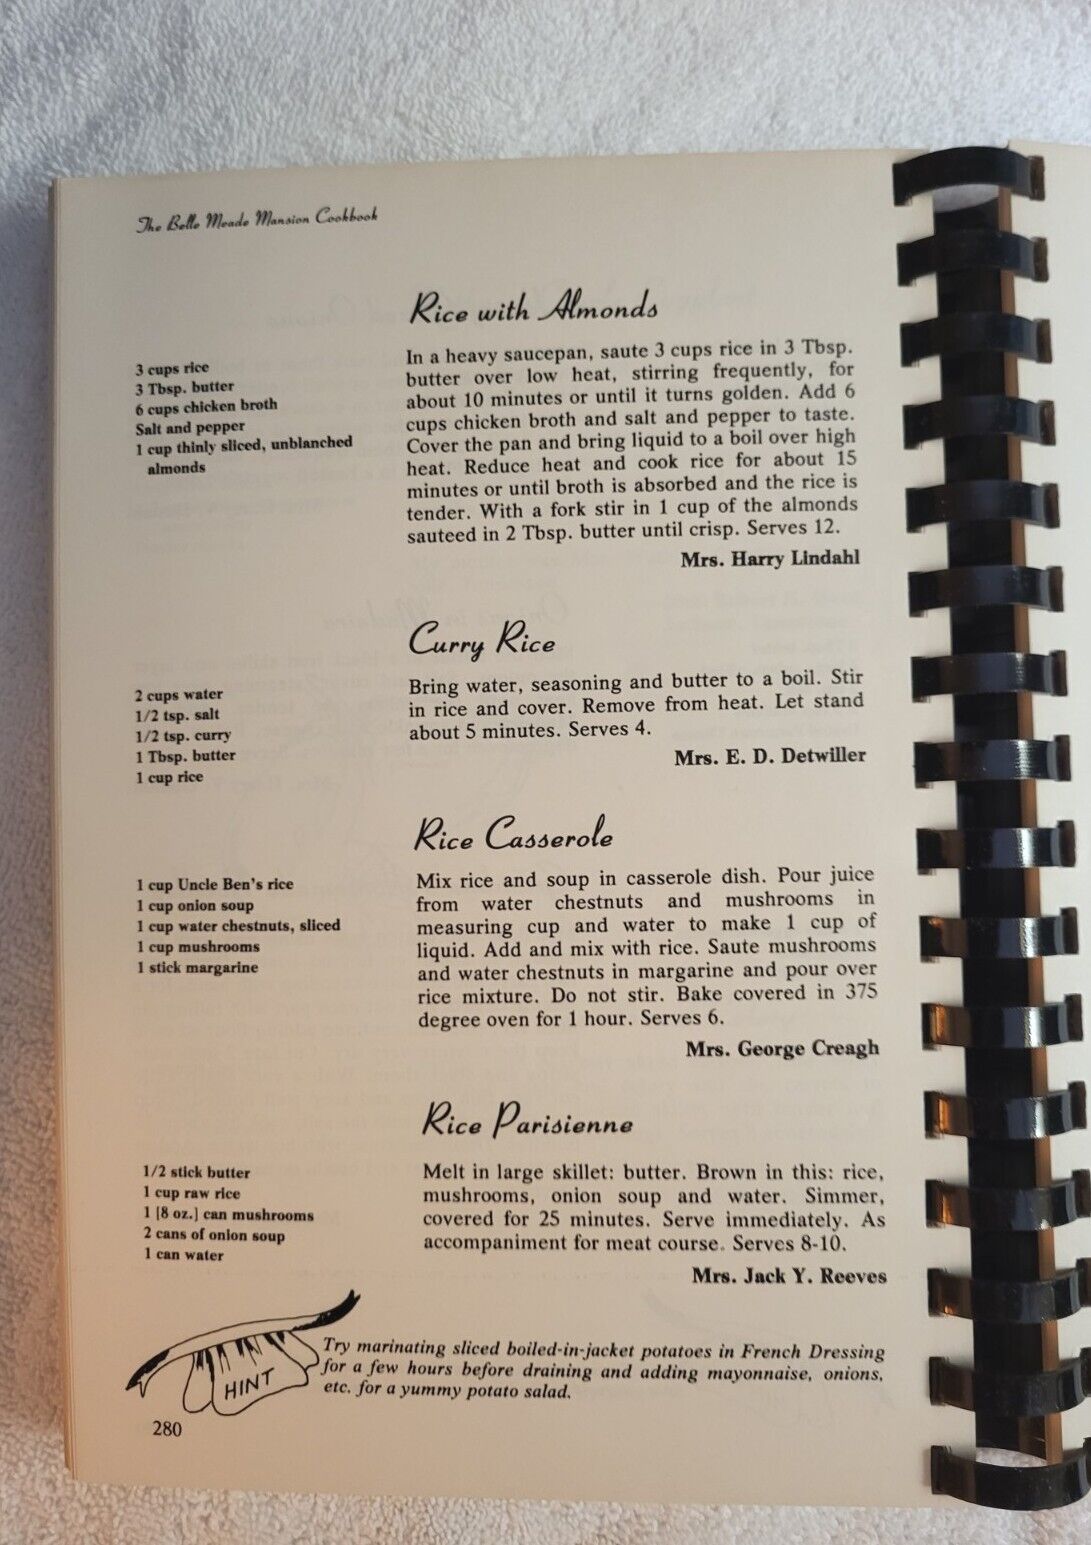 The Belle Meade Mansion Cookbook
Rice with Almonds
3 cups rice
3 Tbsp. butter
6 cups chicken broth
Salt and pepper
1 cup thinly sliced, unblanched
almonds
In a heavy saucepan, saute 3 cups rice in 3 Tbsp.
butter over low heat, stirring frequently, for
about 10 minutes or until it turns golden. Add 6
cups chicken broth and salt and pepper to taste.
Cover the pan and bring liquid to a boil over high
heat. Reduce heat and cook rice for about 15
minutes or until broth is absorbed and the rice is
tender. With a fork stir in 1 cup of the almonds
sauteed in 2 Tbsp. butter until crisp. Serves 12.
Mrs. Harry Lindahl
Curry Rice
2 cups water
1/2 tsp. salt
1/2 tsp. curry
1 Tbsp. butter
1 cup rice
Bring water, seasoning and butter to a boil. Stir
in rice and cover. Remove from heat. Let stand
about 5 minutes. Serves 4.
Mrs. E. D. Detwiller
Rice Casserole
1 cup Uncle Ben's rice
1 cup onion soup
1 cup water chestnuts, sliced
1 cup mushrooms
1 stick margarine
Mix rice and soup in casserole dish. Pour juice
from water chestnuts and mushrooms in
measuring cup and water to make 1 cup of
liquid. Add and mix with rice. Saute mushrooms
and water chestnuts in margarine and pour over
rice mixture. Do not stir. Bake covered in 375
degree oven for 1 hour. Serves 6.
Mrs. George Creagh
Rice Parisienne
1/2 stick butter
1 cup raw rice
1 [8 oz.] can mushrooms
2 cans of onion soup
1 can water
Melt in large skillet: butter. Brown in this: rice,
mushrooms, onion soup and water. Simmer,
covered for 25 minutes. Serve immediately. As
accompaniment for meat course. Serves 8-10.
Mrs. Jack Y. Reeves
HINT
Try marinating sliced boiled-in-jacket potatoes in French Dressing
for a few hours before draining and adding mayonnaise, onions,
etc. for a yummy potato salad.
280